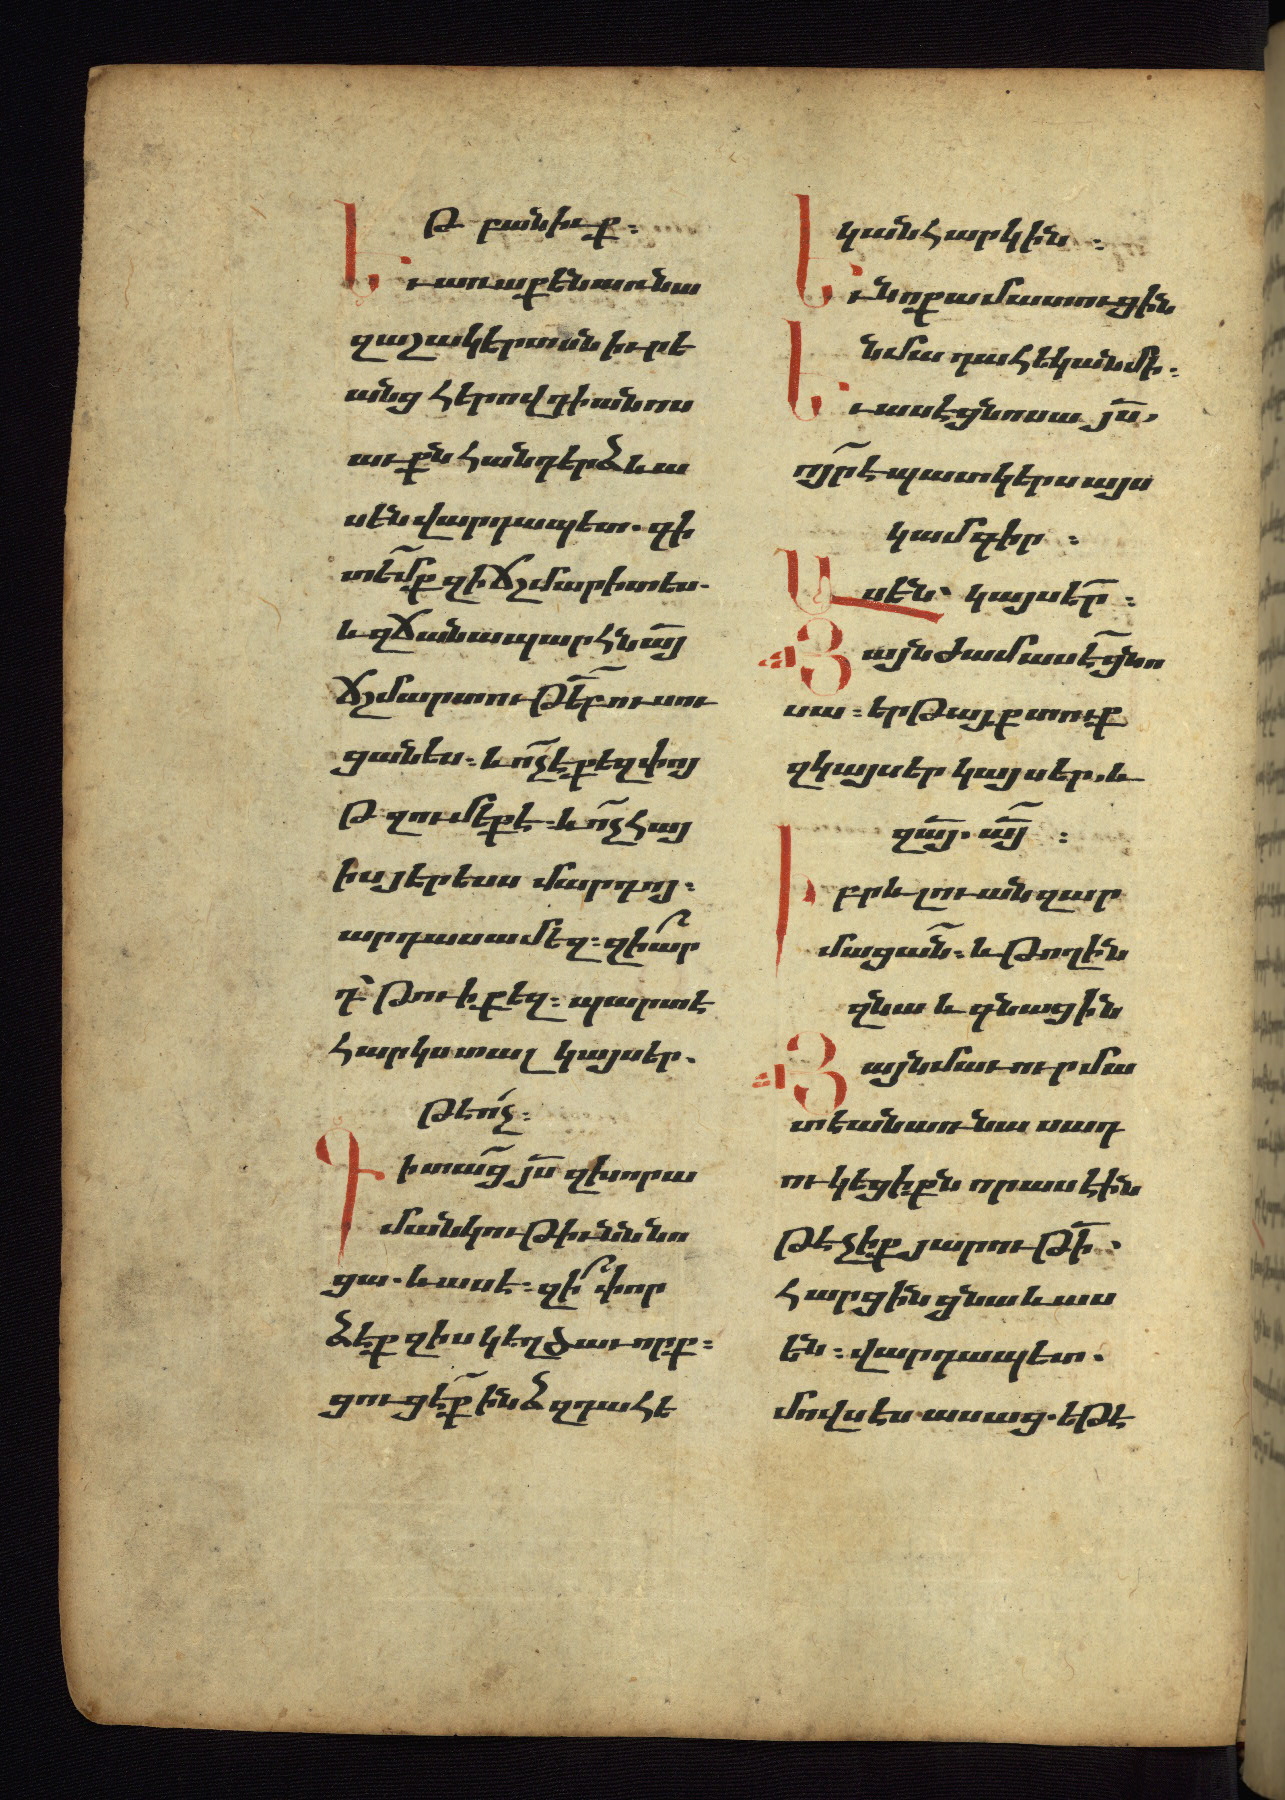 թ բանիւք։
Եւ առաքեն առ նա
զաշակերտսն իւրե
անց հերովդիանոս
աւքն հանդերձ և ա
սեն վարդապետ. գի
տեմք զի ճշմարիտ ես.
և զճանապարհն ա՟յ
ճշմարտութեբ ուսու
ցանես։ և ո՟չ է քեզ փոյ
թ զումեքէ։ և ո՟չ հայ
իս յերեսս մարդոյ։
արդ ասա մեզ։ զիա՟ր
դ թուի քեզ։ պարտ է
հարկս տալ կայսեր.
թե ո՛չ։
Գիտաց յ՟ս զխորա
մանկութիւնն նո
ցա. և ասէ։ զի՞ փոր
ձեք զիս կեղծաւորք։
ցուցէք ինձ զդահե
կան հարկին։
Եւ նոքա մատուցին
նմա դահեկան մի.
Եւ ասէ ցնոսա յ՟ս,
ո՞յր է պատկերս այս
կամ գիր։
Ասեն. կայսեր։
Յայնժամ ասէ ցնո
սա։ երթայք տուք
զկայսեր կայսեր, և
զա՟յ. ա՟յ։
Իբրև լուան զար
մացան։ և թողին
զնա և գնացին
Յայնմ աւուր մա
տեան առ նա սադ
ուկեցիքն որ ասէին
թէ չիք յարութի՟.
հարցին ցնա և աս
են։ վարդապետ.
մովսես ասաց. եթե